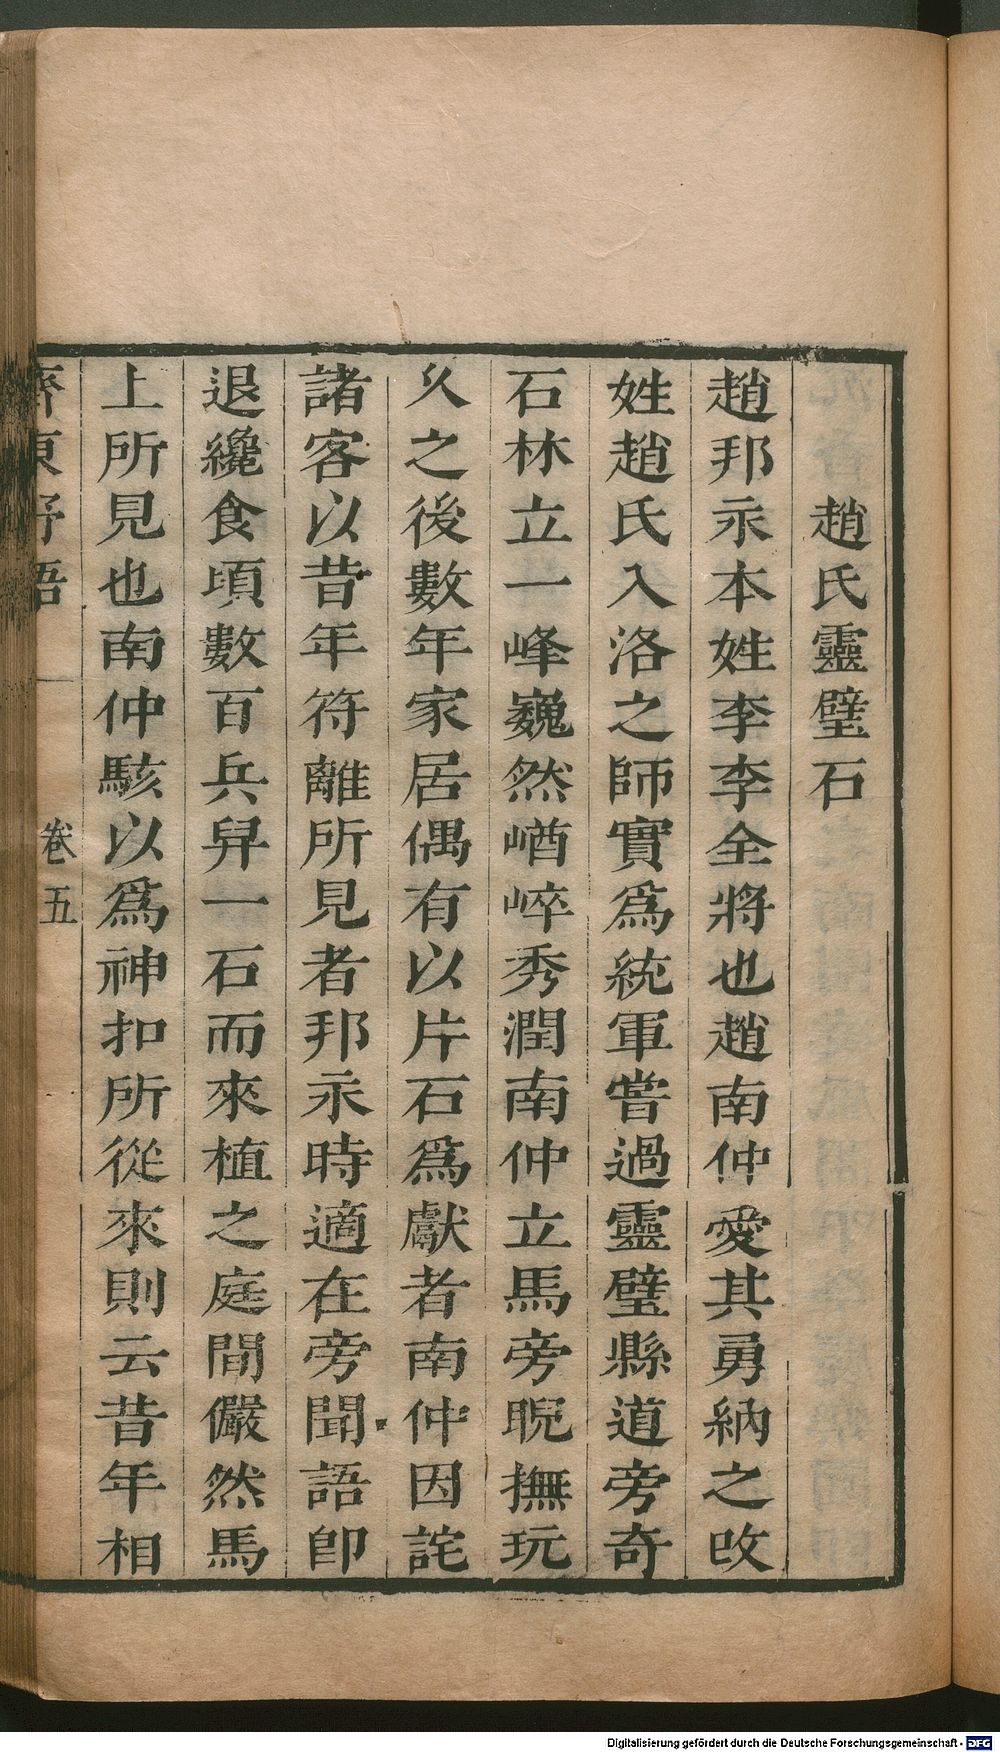 趙氏靈璧石
趙邦永本姓李李全將也趙南仲愛其勇納之改
姓趙氏入洛之師實為統軍嘗過靈璧縣道旁奇
石林立一峰巍然崷崪秀潤南仲立馬旁睨撫玩
久之後數年家居偶有以片石為獻者南仲因詫
諸客以昔年符離所見者邦永時適在旁聞語即
退纔食頃數百兵舁一石而來植之庭間儼然馬
上所見也南仲駭以為神扣所從來則云昔年相
齊東野語 卷五
Digitalisierung gefördert durch die Deutsche Forschungsgemeinschaft - DFG